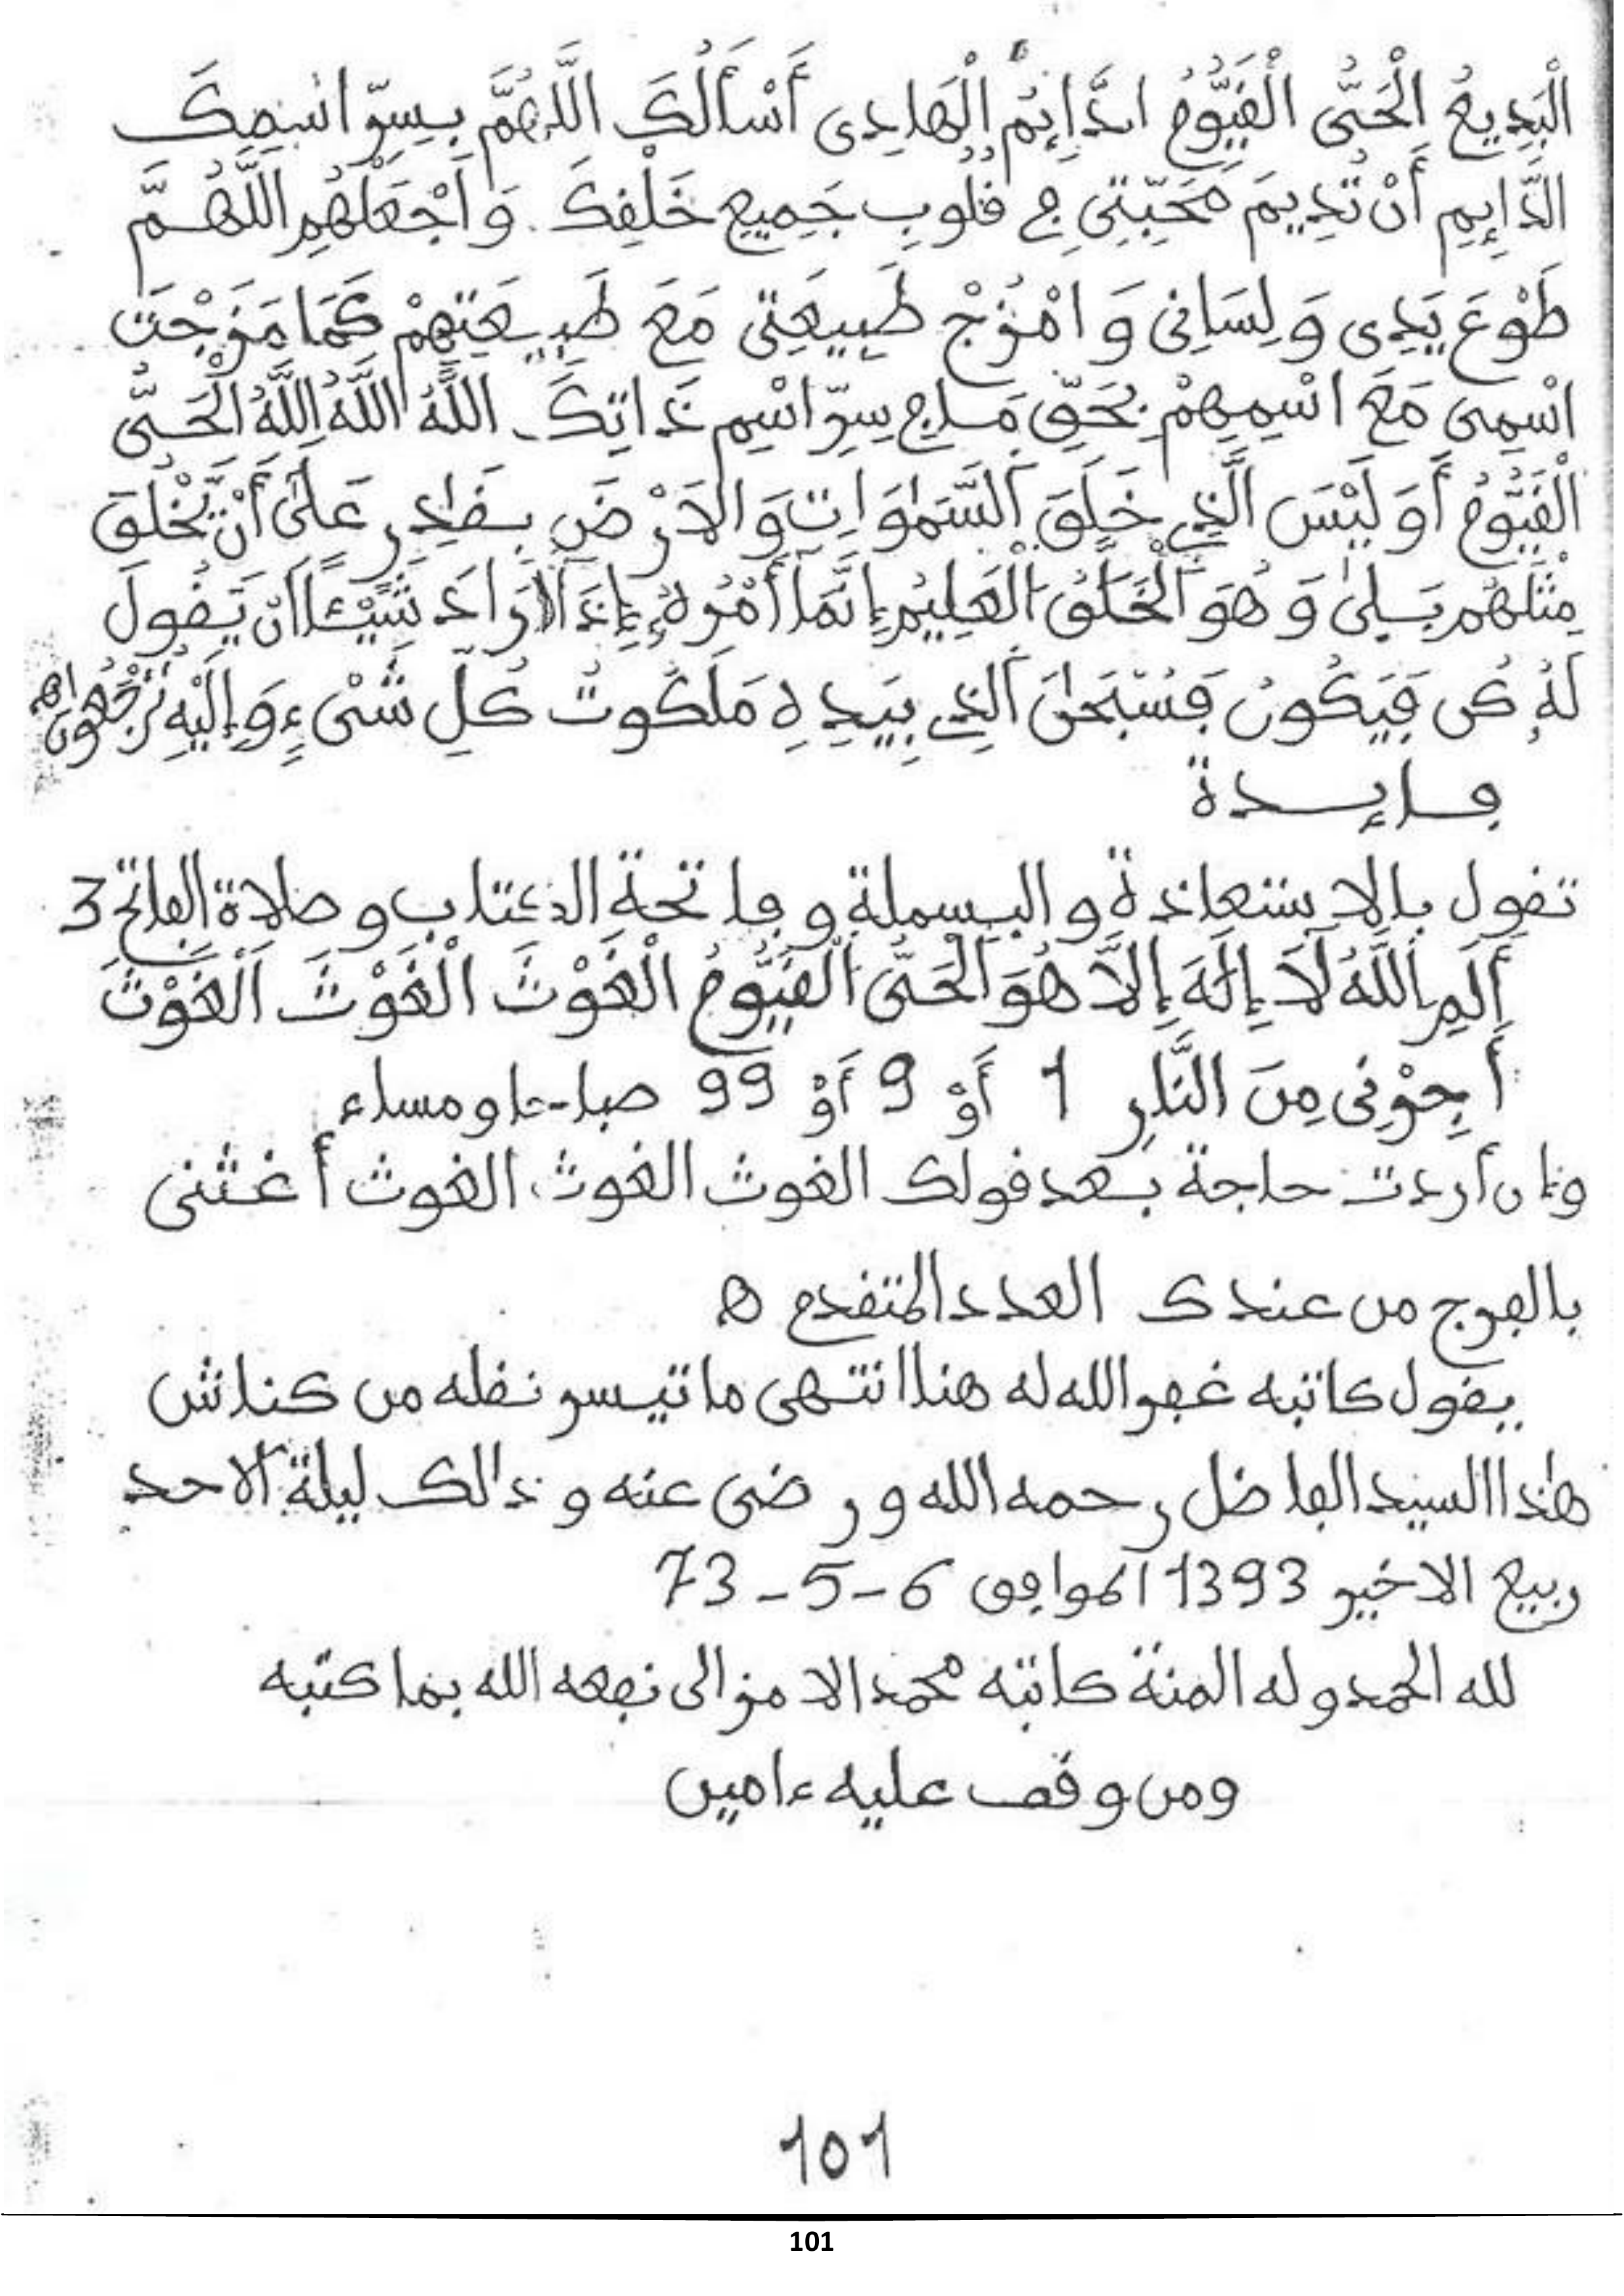 الْبَدِيعُ الْحَىُّ الْقَيُّومُ الدَّايِمُ الْهَادِى أَسْأَلُكَ اللَّهُمَّ بِسِرِّ اسْمِكَ
الدَّايِمِ أَنْ تُدِيمَ مَحَبَّتِى فِى قُلُوبِ جَمِيعِ خَلْقِكَ وَاجْعَلْهُمِ اللَّهُمَّ
طَوْعَ يَدِى وَلِسَانِى وَامْزُجْ طَبِيعَتِى مَعَ طَبِيعَتِهِمْ كَمَا مَزَجْتَ
اسْمِى مَعَ اسْمِهِمْ بِحَقِّ مَا فِى سِرِّ اسْمِ ذَاتِكَ اللَّهُ اللَّهُ اللَّهُ الْحَىُّ
الْقَيُّومُ أَوَلَيْسَ الَّذِى خَلَقَ السَّمٰوَاتِ وَالَارْضَ بِقَادِرٍ عَلَىٰ أَنْ يَّخْلُقَ
مِثْلَهُم بَلِىٰ وَهُوَ الْخَلَّقُ الْعَلِيمُ إِنَّمَا أَمْرُهُ إِذَا أَرَادَ شَيْئًا اَنْ يَقُولَ
لَهُ كُن فَيَكُونُ فَسُبْحَٰنَ الَّذِى بِيَدِهِ مَلَكُوتُ كُلِّ شَىْءٍ وَإِلَيْهِ تُرْجَعُونَ اهـ
فايدة
تقول بالاستعاذة والبسملة وفاتحة الكتاب وصلاة الفاتح 3
أَلَمِ اللَّهُ لَا إِلَهَ إِلَّا هُوَ الْحَىُّ الْقَيُّومُ الْغَوْثَ الْغَوْثَ الْغَوْثَ
أَجِرْنِى مِنَ النَّارِ 1 أَوْ 9 أَوْ 99 صباحا ومساء
وإن أردت حاجة بعد قولك الغوث الغوث الغوث أغثنى
بالفرج من عندك العدد المتقدم اهـ
يقول كاتبه غفر الله له هنا انتهى ما تيسر نقله من كناش
هٰذا السيد الفاضل رحمه الله ورضى عنه وذالك ليلة الاحد
ربيع الاخير 1393 الموافق 6-5-73
لله الحمد وله المنة كاتبه محمد الامزالى نفعه الله بما كتبه
ومن وقف عليه ءامين
101
101